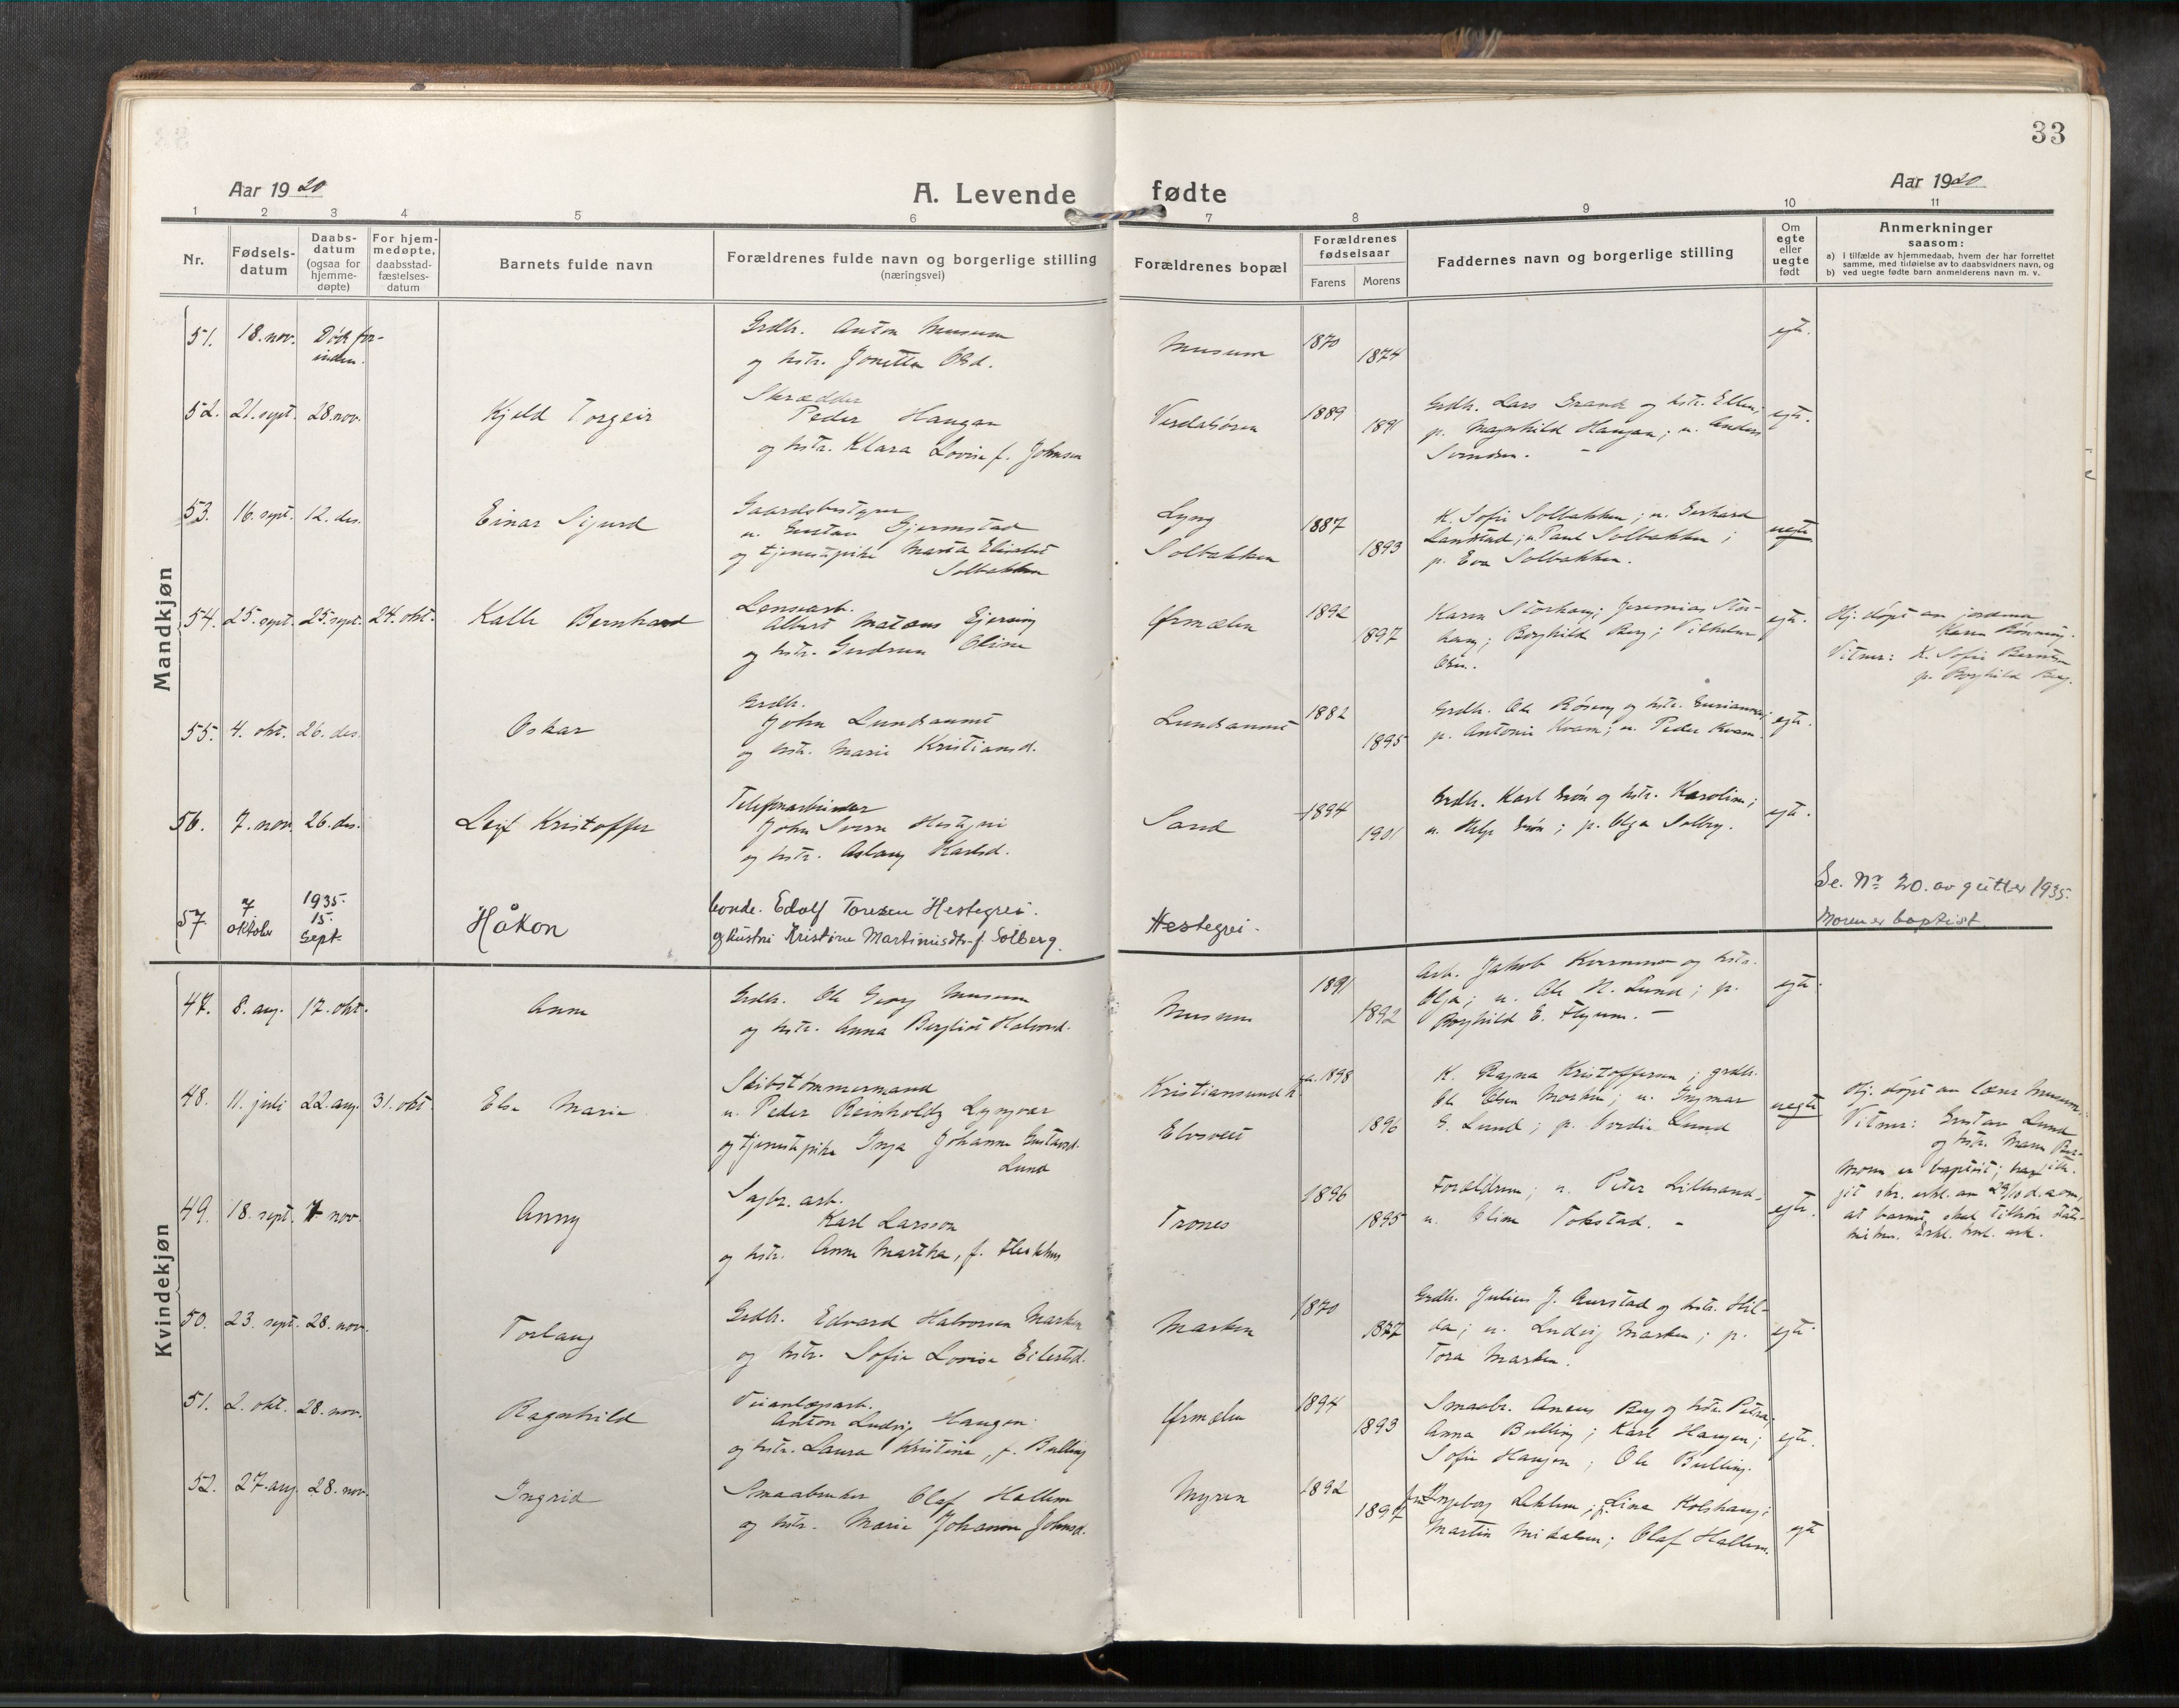 33
Aar 1920
A. Levende fødte
Aar 1920
1 2 3 4 5 6 7 8 9 10 11
Nr.
Fødsels-
datum
Daabs-
datum
(ogsaa for
hjemme-
døpte)
For hjem-
medøpte,
daabsstad-
fæstelses-
datum
Barnets fulde navn
Forældrenes fulde navn og borgerlige stilling
(næringsvei)
Forældrenes bopæl
Forældrenes
fødselsaar
Farens Morens
Faddernes navn og borgerlige stilling
Om
egte
eller
uegte
født
Anmerkninger
saasom:
a) I tilfælde av hjemmedaab, hvem der har forrettet
samme, med tilføielse av to daabsvidners navn, og
b) ved uegte fødte barn anmelderens navn m. v.
Mandkjøn
51. 18. nov. Død for-
inden.
Grdbr. Anton Musum
og hstr. Jonetta Olsd.
Musum 1870 1874
egte.
52. 21. sept. 28. nov.
Kjeld Torgeir
Skrædder
Peder Haugan
og hstr. Klara Lovise f. Johnsen
Verdalsøren 1889 1891
Grdbr. Lars Grande og hstr. Ellen;
p. Magnhild Haugan; u. Anders
Svendsen. -
egte.
53. 16. sept. 12. des.
Einar Sigurd
Gaardsbestyrer
u. Gustav Gjermstad
og tjenestepike Marta Elisabet
Solbakken
Lyng
Solbakken
1887 1893
K. Sofie Solbakken; u. Gerhard
Landstad; u. Paul Solbakken;
p. Eva Solbakken.
uegte
54. 25. sept. 25. sept. 24. okt.
Kalle Bernhard
Lensearb.
Albert Mataus Gjersing
og hstr. Gudrun Oline
Ørmelen 1892 1897
Karen Storhaug; Jeremias Stor-
haug; Borghild Berg; Vilhelm
egte.
Hj. døpt av jordmor
Karen Rönning.
Vitner: K. Sofie Berntsen
p. Borghild Berg.
55. 4. okt. 26. des.
Oskar
Grdbr.
John Lundsaunet
og hstr. Marie Kristiansd.
Lundsaunet 1882 1895
Grdbr. Ole Røseng og hstr.
p. Antonie Kvam; u. Peder Kvam
egte.
56. 7. nov. 26. des.
Leif Kristoffer
Telefonarbeider
John Sverre Hestegrei
og hstr. Aslaug Karlsd.
Sand 1894 1901
Grdbr. Karl Grön og hstr. Karoline;
u. Helge Grön; p. Olga Solberg.
egte.
57 7 oktober 1935. 15. Sept.
Håkon
bonde. Edolf Toresen Hestegrei.
og hustru Kristine Martinusdtr f. Solberg.
Hestegrei.
Se. Nr 20. av gutter 1935.
Moren er baptist.
Kvindekjøn
47. 8. aug. 17. okt.
Anna
Grdbr. Ole Georg Musum
og hstr. Anna Bergliot Halvorsd.
Musum 1891 1892
Arb. Jakob Kvernmo og hstr.
Olga; u. Ole N. Lund; p.
Borghild E. Flyum. -
egte.
48. 11. juli 22. aug. 31. okt.
Else Marie
Skibstømmermand
u. Peder Reinholdz Lyngvær
og tjenestepike Inga Johanne Gustavsd.
Lund
Kristiansund N.
Elvsveet
ca. 1898 1896
K. Ragna Kristoffersen; grdbr.
Ole Olsen Morken; u. Ingmar
G. Lund; p. Verdie Lund
uegte
Hj. døpt av lærer Musum.
Vitner: Gustav Lund
og hstr. Maren
49. 18. sept. 7. nov.
Anny
Sagbr. arb.
Karl Larsson
og hstr. Anne Martha, f. Flekkhus
Trones 1896 1895
Forældrene; u. Peter Lillesand;
u. Eline Tokstad. -
egte.
Moren er baptist; har
git skr. erkl. av 29/10 d. a. om,
at barnet skal tilhøre stats-
kirken. Erkl. vedl. ark.
50. 23. sept. 28. nov.
Torlaug
Grdbr. Edvard Halvorsen Marken
og hstr. Sofie Lovise Eilertsd.
Marken 1870 1877
Grdbr. Julius J. Aurstad og hstr. Hil-
da; u. Ludvig Marken; p.
Tora Marken.
egte.
51. 2. okt. 28. nov.
Ragnhild
Veianlægsarb.
Anton Ludvig Haugen
og hstr. Laura Kristine, f. Bulling
Ørmelen 1894 1893
Smaabr. Aneus Berg og hstr. Petra;
Anna Bulling; Karl Haugen;
Sofie Haugen; Ole Bulling.
egte.
52. 27. aug. 28. nov.
Ingrid
Smaabruker Olaf Hallem
og hstr. Marie Johanna Johnsd.
Myren 1892 1897
Ingeborg Leklem; p. Lina Kolshaug;
Martin Mikalsen; Olaf Hallem.
egte